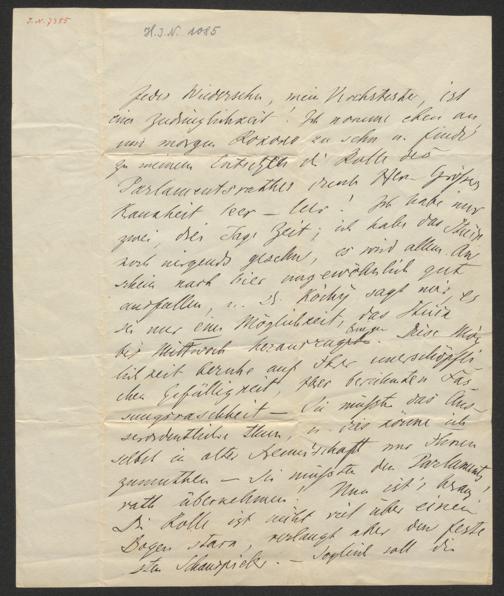 I.N. 7385
H.I.N. 1085
Jedes Wiedersehn, mein Verehrtester, ist
eine Zudringlichkeit! Ich komme eben an
um morgen Rokoko zu sehn u. finde
zu meinem Entsetzen die Rolle des
Parlamentsrathes durch Hrn
Krankheit leer – leer! Ich habe nur
zwei, drei Tage Zeit; ich habe das Stück
noch nirgends gesehn, es wird allem An
schein nach hier ungewöhnlich gut
ausfallen, u. sagt mir, es
sei nur eine Möglichkeit, das Stück
bis Mittwoch herauszu bringen. Diese Mög
lichkeit beruhe auf Ihrer unerschöpfli
chen Gefälligkeit, Ihrer berühmten Fas
sungsraschheit – Sie müßten das Aus
serordentliche thun, u. dies könne ich
selbst in alter Kenntschaft nur Ihnen
zumuthen – Sie müßten den Parlaments
rath übernehmen! Nun ist's heraus!
Die Rolle ist nicht viel über einen
Bogen stark, verlangt aber den feste
sten Schauspieler. – Sogleich soll die